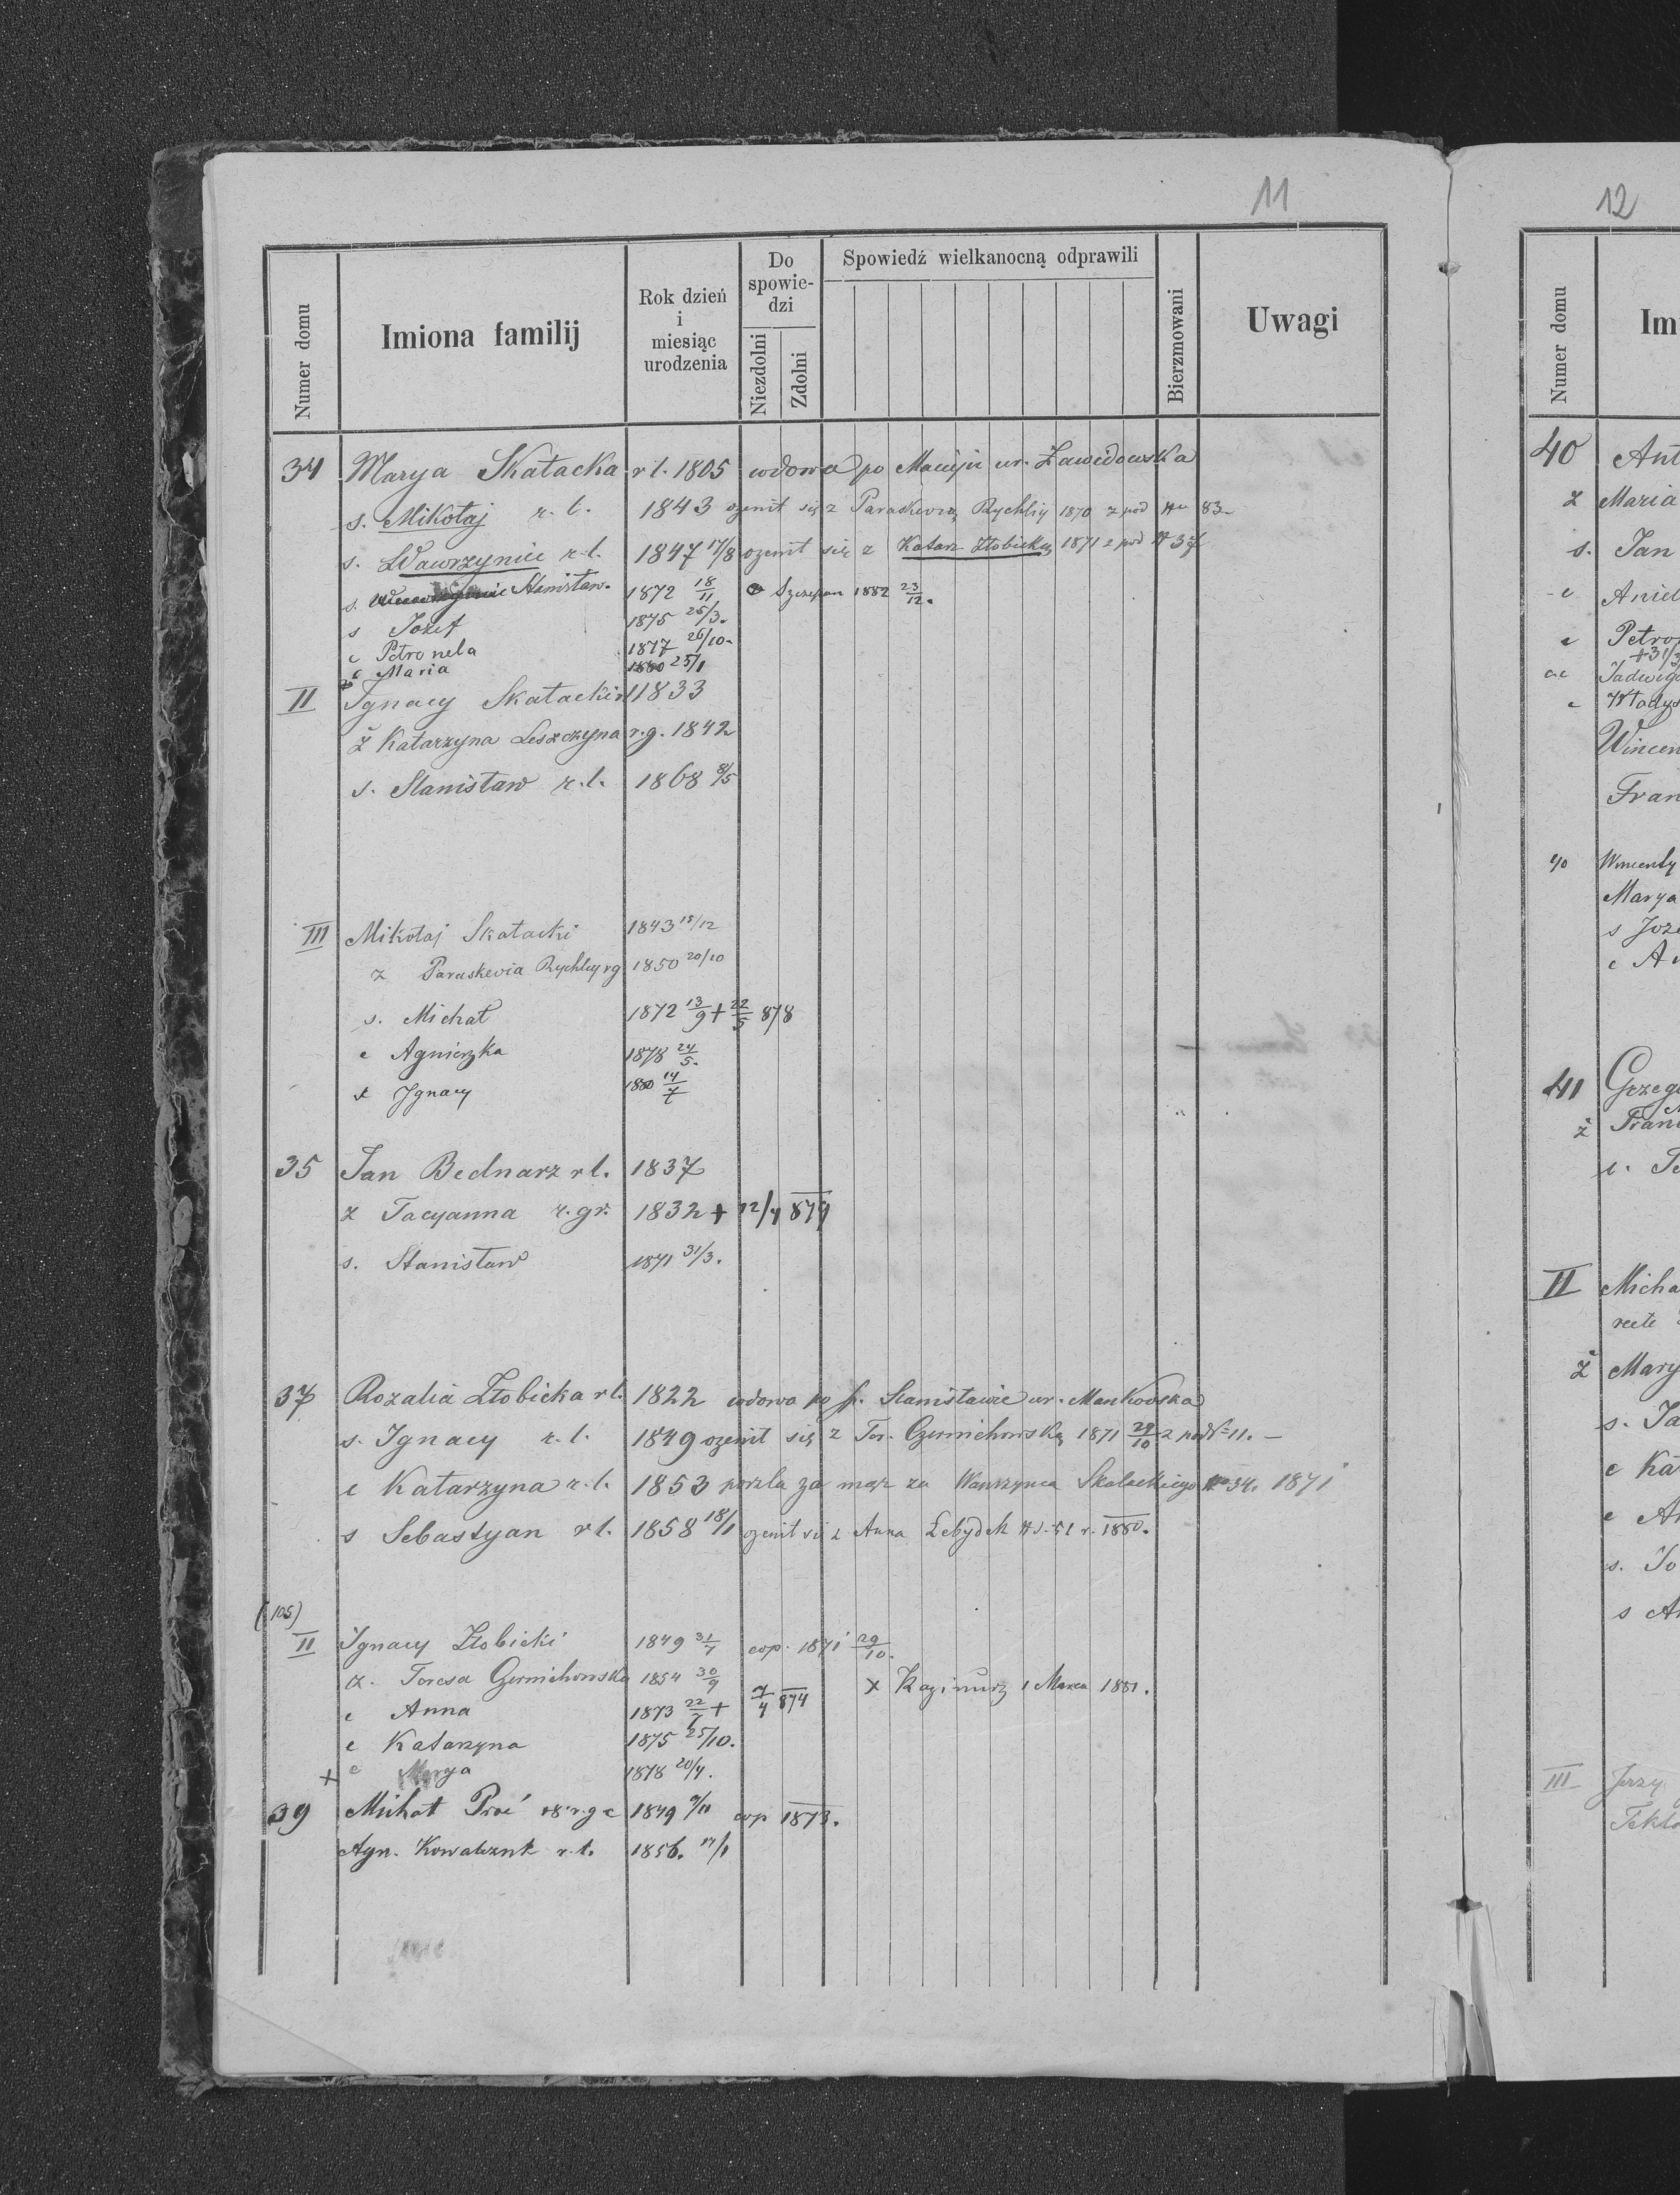 11
Numer domu
Imiona familij
Rok dzień i miesiąc urodzenia
Do spowiedzi
Niezdolni
Zdolni
Spowiedź wielkanocną odprawili
Bierzmowani
Uwagi
34 Marya Skałacka r.l. 1805 wdowa po Macieju ur. Zawidowska
s. Mikołaj r.l. 1843 ożenił się z Paraskewią Rychlij 1870 z pod Nu 83.
s. Wawrzyniec r.l. 1847 17/8 ożenił się z Katarz Złobicką 1871 z pod N 37
s. Stanisław. 1872 18/11 Szczepan 1882 23/12.
s Józef 1875 25/3.
c Petronela 1877 26/10.
c Maria 1880 25/1
II Ignacy Skałacki rl 1833
ż Katarzyna Leszczyna r.g. 1842
s. Stanisław r.l. 1868 8/5
III Mikołaj Skałacki 1843 18/12
z Paraskevia Rychlij rg 1850 20/10
s. Michał 1872 13/9 + 22/5 878
c Agnieszka 1878 24/5.
s Ignacy 1880 14/7
35 Jan Bednarz r l. 1837
z Tacyanna r.gr. 1832 + 12/4 879
s. Stanisław 1871 31/3.
37 Rozalia Złobicka rl. 1822 wdowa po ś. Stanisławie ur. Mankowska
s. Ignacy r.l. 1849 ożenił się z Ter. Czernichowską 1871 29/10 z pod N 11. –
c Katarzyna r.l. 1853 poszła za mąż za Wawrzyńca Skałackiego No 34. 1871
s Sebastyan r l. 1858 18/1 ożenił się z Anna Łebydek N 51 r. 1880.
(105)
II Ignacy Złobicki 1849 31/7 cop. 1871 29/10.
z. Teresa Czernichowska 1854 30/9
c Anna 1873 22/7 + 7/4 874 x Kazimirz 1 Marca 1881.
c Katarzyna 1875 25/10.
+ c Marya 1878 20/4.
39 Michał Proć r.g 1849 9/11 cop 1873.
Agn. Kowalczuk r.l. 1856. 17/1
12
Numer domu
Im
40 Ant
z Maria
s. Jan
c Aniel
c Petro
+31/3
Jadwig
c Włady
Wincen
Fran
40 Wincenty
Marya
s Józ
c A
41 Grzeg
ż Fran
II Micha
recte
ż Mary
s. Ja
c Ka
c A
s. Jo
s A
III Jerzy
Tekl